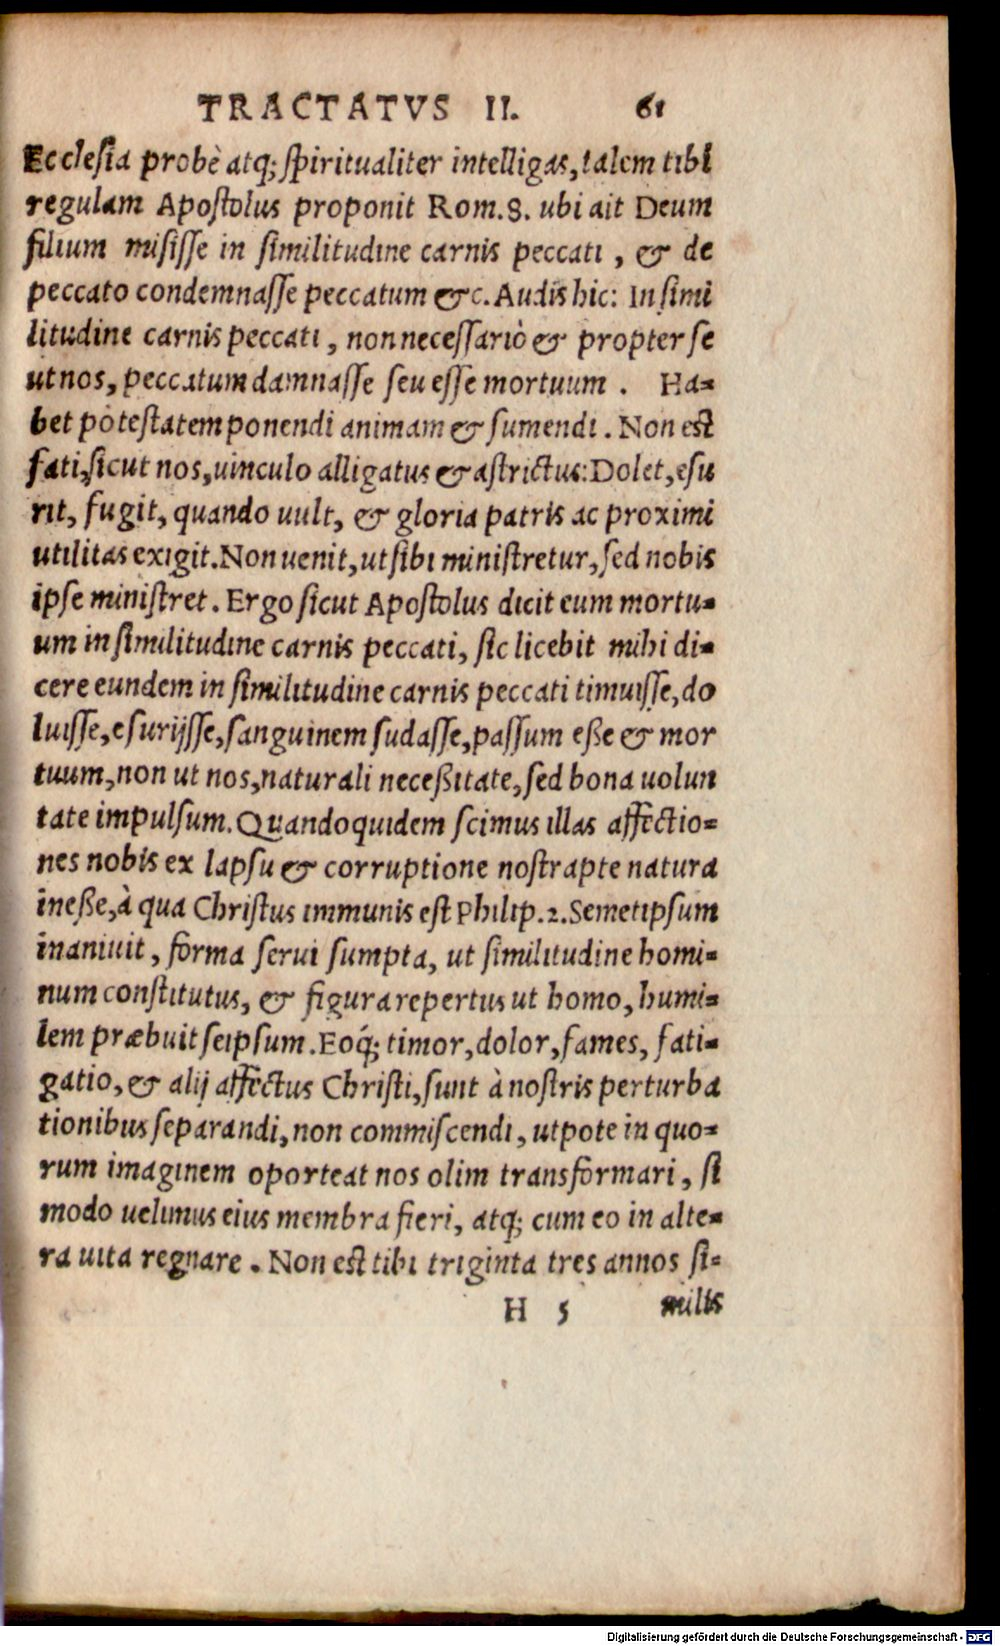 TRACTATVS II. 61
Ecclesia probè atq; spiritualiter intelligas, talem tibi
regulam Apostolus proponit Rom. 8. ubi ait Deum
filium misisse in similitudine carnis peccati, & de
peccato condemnasse peccatum &c. Audis hic: In simi
litudine carnis peccati, non necessariò & propter se
ut nos, peccatum damnasse seu esse mortuum. Ha-
bet potestatem ponendi animam & sumendi. Non est
fati, sicut nos, uinculo alligatus & astrictus: Dolet, esu
rit, fugit, quando uult, & gloria patris ac proximi
utilitas exigit. Non uenit, ut sibi ministretur, sed nobis
ipse ministret. Ergo sicut Apostolus dicit eum mortu-
um in similitudine carnis peccati, sic licebit mihi di-
cere eundem in similitudine carnis peccati timuisse, do
luisse, esurijsse, sanguinem sudasse, passum eße & mor
tuum, non ut nos, naturali neceßitate, sed bona uolun
tate impulsum. Quandoquidem scimus illas affectio-
nes nobis ex lapsu & corruptione nostrapte natura
ineße, à qua Christus immunis est Philip. 2. Semetipsum
inaniuit, forma serui sumpta, ut similitudine homi-
num constitutus, & figura repertus ut homo, humi-
lem præbuit seipsum. Eoq́; timor, dolor, fames, fati-
gatio, & alij affectus Christi, sunt à nostris perturba
tionibus separandi, non commiscendi, utpote in quo-
rum imaginem oporteat nos olim transformari, si
modo uelimus eius membra fieri, atq; cum eo in alte-
ra uita regnare. Non est tibi triginta tres annos si-
H 5 milis
Digitalisierung gefördert durch die Deutsche Forschungsgemeinschaft - DFG